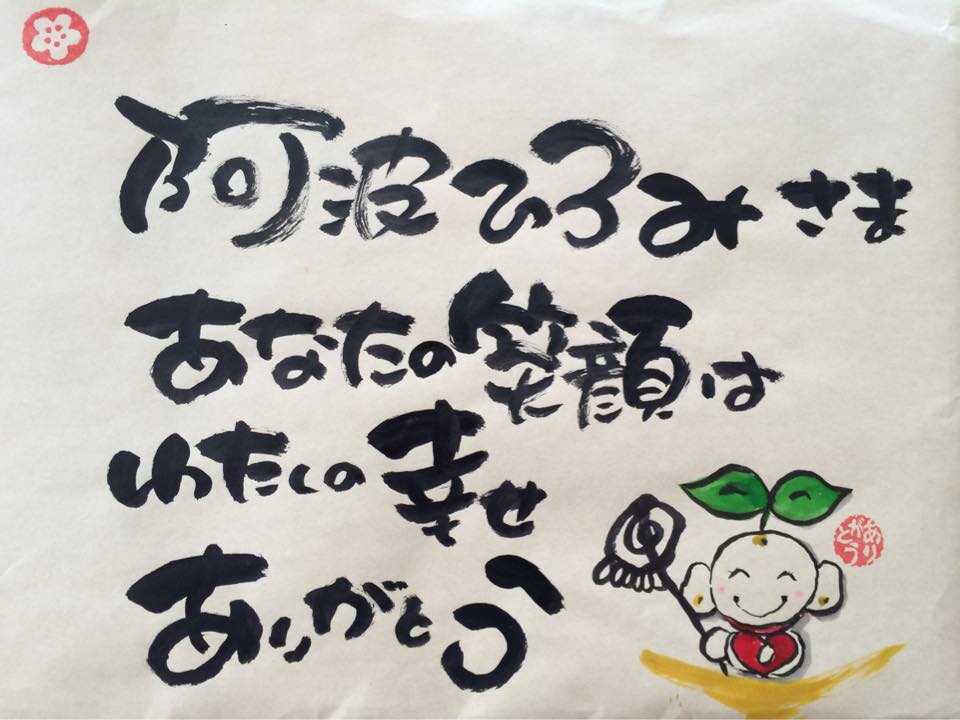 阿波ひろみさま
あなたの笑顔は
わたしの幸せ
ありがとう
ありがとう